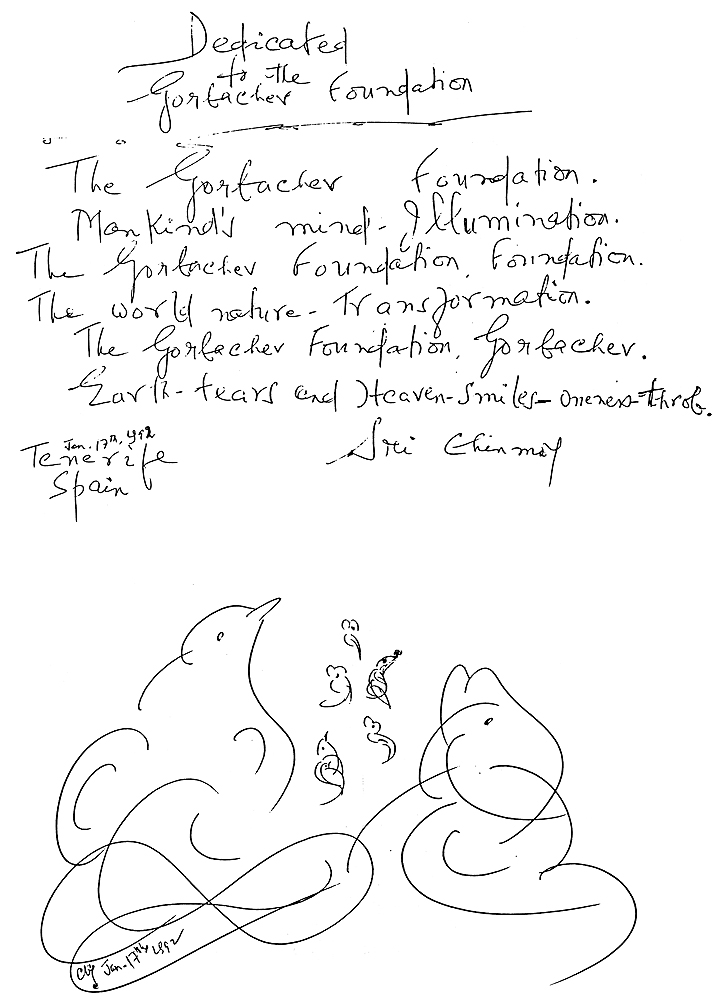 Dedicated
to the
Gorbachev Foundation
The Gorbachev Foundation.
Mankind's mind-Illumination.
The Gorbachev Foundation, Foundation.
The world nature-Transformation.
The Gorbachev Foundation, Gorbachev.
Earth-tears and Heaven-Smiles-oneness-throb.
Jan. 17th, 1992
Tenerife
Spain
Sri Chinmoy
CKG Jan-17th 1992